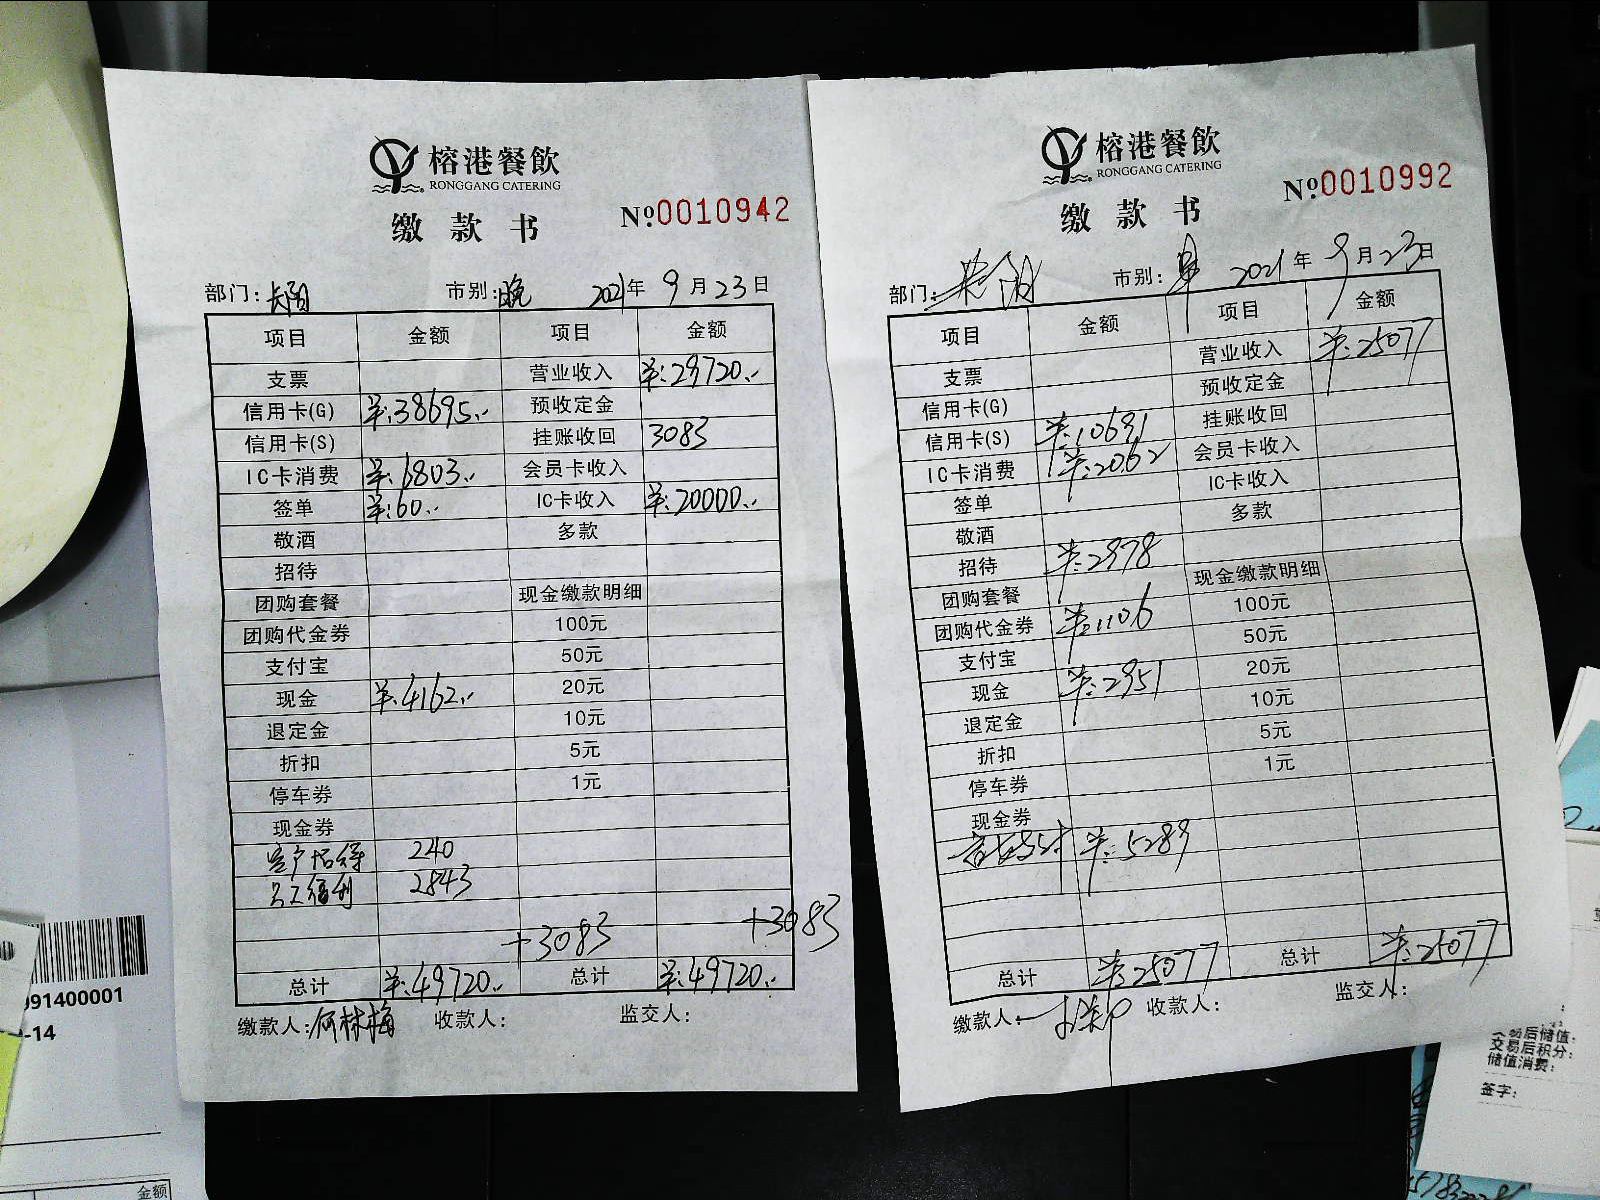 榕港餐飲
RONGGANG CATERING
缴款书
№0010942
部门: 市别:晚 2021年9月23日
项目 金额 项目 金额
支票 营业收入 ¥:29720.
信用卡(G) ¥:38695. 预收定金
信用卡(S) 挂账收回 3083
IC卡消费 ¥:6803. 会员卡收入
签单 ¥:60. IC卡收入 ¥:20000.
敬酒 多款
招待
团购套餐 现金缴款明细
团购代金券 100元
支付宝 50元
现金 ¥:4162. 20元
退定金 10元
折扣 5元
停车券 1元
现金券
客户招待 240
员工福利 2843
+3083 +3083
总计 ¥:49720. 总计 ¥:49720.
缴款人:何林梅 收款人: 监交人:
榕港餐飲
RONGGANG CATERING
缴款书
№0010992
部门: 市别: 2021年9月23日
项目 金额 项目 金额
支票 营业收入 ¥:25077
信用卡(G) 预收定金
信用卡(S) ¥:10691 挂账收回
IC卡消费 ¥:2062 会员卡收入
签单 IC卡收入
敬酒 多款
招待 ¥:2978
团购套餐 现金缴款明细
团购代金券 ¥:1106 100元
支付宝 50元
现金 ¥:2951 20元
退定金 10元
折扣 5元
停车券 1元
现金券
¥:5289
总计 ¥:25077 总计 ¥:25077
缴款人: 收款人: 监交人:
091400001
-14
金额
易后储值:
交易后积分:
储值消费:
签字: